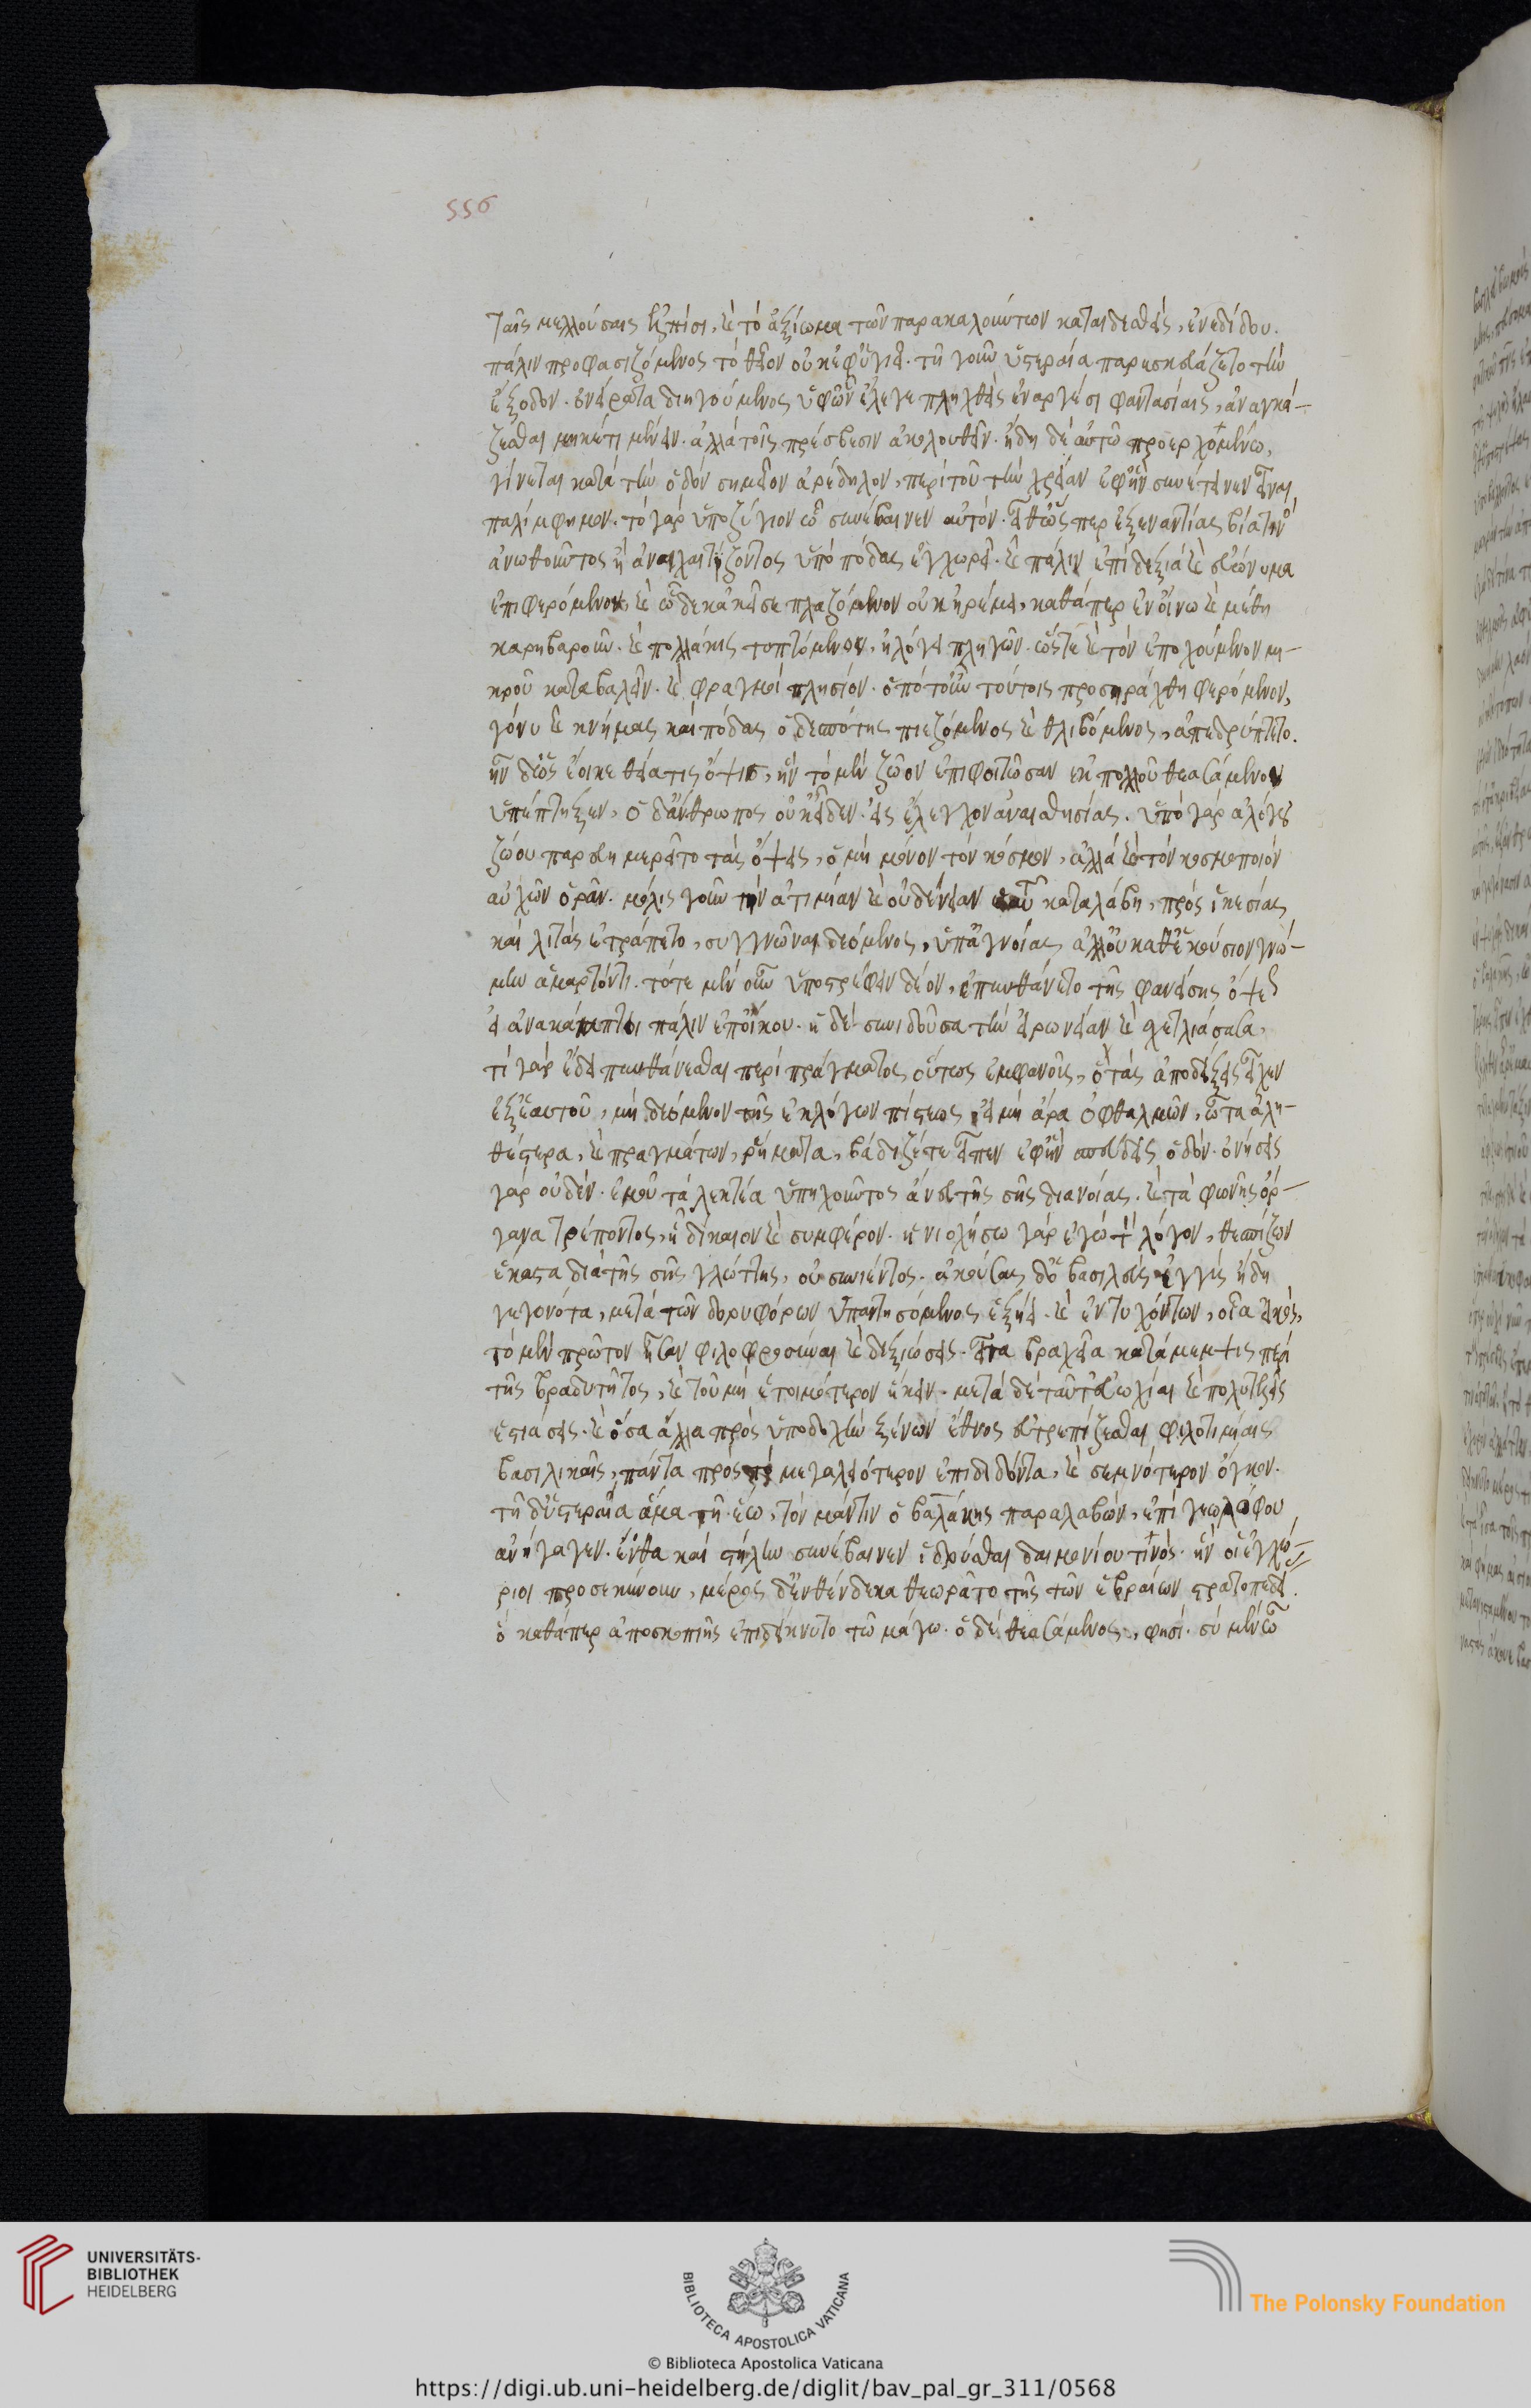 556
ταῖς μελλούσαις ἐλπίσι, καὶ τὸ ἀξίωμα τῶν παρακαλούντων καταιδεσθεὶς, ἐνεδίδου.
πάλιν προφασιζόμενος τὸ θεῖον οὐκ ἐφ' ὑγιεῖ. τῇ γοῦν ὑστεραία παρεσκευάζετο τὴν
ἔξοδον. ὀνείρατα διηγούμενος ὑφ' ὧν ἔλεγε πληχθεὶς ἐναργέσι φαντασίαις, ἀναγκά-
ζεσθαι μηκέτι μένειν. ἀλλὰ τοῖς πρέσβεσιν ἀκολουθεῖν. ἤδη δὲ αὐτῶ προερχομένω,
γίνεται κατὰ τὴν ὁδὸν σημεῖον ἀρίδηλον, περὶ τοῦ τὴν χρείαν ἐφ' ἣν συνέτεινεν εἶναι
παλίμφημον. τὸ γὰρ ὑποζύγιον ὧ συνέβαινεν αὐτὸν.
ἀνωθοῦντος ἢ ἀναχαιτίζοντος ὑπὸ πόδας ἐγχωρεῖ. καὶ πάλιν ἐπὶ δεξιὰ καὶ εὐώνυμα
ἐπιφερόμενον, καὶ ὧδε κἀκεῖσε πλαζόμενον οὐκ ἠρέμει, καθάπερ ἐν οἴνω καὶ μέθη
καρηβαροῦν. καὶ πολλάκις τυπτόμενον, ἠλόγει πληγῶν. ὥστε καὶ τὸν ἐποχούμενον μι-
κροῦ καταβαλεῖν. καὶ φραγμοὶ πλησίον. ὁπότ' οὖν τούτοις προσηράχθη φερόμενον,
γόνυ καὶ κνήμας καὶ πόδας ὁ δεσπότης πιεζόμενος καὶ θλιβόμενος, ἀπεδρύπτετο.
ἦν δὲ ὡς ἔοικε θεία τις ὄψις, ἣν τὸ μὲν ζῶον ἐπιφοιτῶσαν ἐκ πολλοῦ θεασάμενον
ὑπέπτηξεν, ὁ δ' ἄνθρωπος οὐκ εἶδεν. εἰς ἔλεγχον ἀναισθησίας. ὑπὸ γὰρ ἀλόγου
ζώου παρευημερεῖτο τὰς ὄψεις, ὁ μὴ μόνον τὸν κόσμον, ἀλλὰ καὶ τὸν κοσμοποιὸν
αὐχῶν ὁρᾶν. μόλις γοῦν τὴν καταλάβη, πρὸς ἱκεσίας
καὶ λιτὰς ἐτράπετο, συγγνῶναι δεόμενος, ὑπ' ἀγνοίας ἀλλ' οὐ καθ' ἑκούσιον γνώ-
μην ἁμαρτόντι. τότε μὲν οὖν ὑποστρέφειν δέον, ἐπυνθάνετο τῆς φανείσης ὄψεως
εἰ ἀνακάμπτοι πάλιν ἐπ' οἴκου. ἡ δὲ συνιδοῦσα τὴν εἰρωνείαν καὶ σχετλιάσασα,
τί γὰρ ἔδει πυνθάνεσθαι περὶ πράγματος οὕτως ἐμφανοῦς, ὃ τὰς ἀποδείξεις εἶχεν
ἐξ ἑαυτοῦ, μὴ δεόμενον τῆς ἐκ λόγων πίστεως, εἰ μὴ ἄρα ὀφθαλμῶν, ὦτα ἀλη-
θέστερα, καὶ πραγμάτων, ῥήματα, βάδιζέ τε εἶπεν ἐφ' ἣν σπεύδεις ὁδόν. ὀνήσεις
γὰρ οὐδέν. ἐμοῦ τὰ λεκτέα ὑπηχοῦντος ἄνευ τῆς σῆς διανοίας. καὶ τὰ φωνῆς ὄρ-
γανα τρέποντος, ᾗ δίκαιον καὶ συμφέρον. ἡνιοχήσω γὰρ ἐγὼ τὸν λόγον, θεσπίζων
ἕκαστα διὰ τῆς σῆς γλώττης, οὐ συνιέντος. ἀκούσας δ' ὁ βασιλεὺς ἐγγὺς ἤδη
γεγονότα, μετὰ τῶν δορυφόρων ὑπαντησόμενος ἐξῄει. καὶ ἐντυχόντων, οἷα εἰκὸς,
τὸ μὲν πρῶτον ἦσαν φιλοφροσύναι καὶ δεξιώσεις. εἶτα βραχεῖα κατάμεμψις περὶ
τῆς βραδυτῆτος, καὶ τοῦ μὴ ἑτοιμότερον ἥκειν. μετὰ δὲ ταῦτ' εὐωχίαι καὶ πολυτελεῖς
ἑστιάσεις. καὶ ὅσα ἄλλα πρὸς ὑποδοχὴν ξένων ἔθνος εὐτρεπίζεσθαι φιλοτιμίαις
βασιλικαῖς, πάντα πρὸς τὸ μεγαλειότερον ἐπιδιδόντα, καὶ σεμνότερον ὄγκον.
τῇ δ' ὑστεραία ἅμα τῇ ἕω, τὸν μάντιν ὁ βαλάκης παραλαβὼν, ἐπὶ γεωλόφου
ἀνήγαγεν. ἔνθα καὶ στήλην συνέβαινεν ἱδρύσθαι δαιμονίου τινὸς. ἣν οἱ ἐγχώ-
ριοι προσεκύνουν, μέρος δ' ἐνθένδεκα θεωρᾶτο τῆς τῶν ἑβραίων στρατοπεδεί.
ὃ καθάπερ ἀπὸ σκοπιῆς ἐπιδείκνυτο τῶ μάγω. ὁ δὲ θεασάμενος, φησί. σὺ μὲν ὦ
UNIVERSITÄTS-
BIBLIOTHEK
HEIDELBERG
BIBLIOTECA APOSTOLICA VATICANA
The Polonsky Foundation
© Biblioteca Apostolica Vaticana
https://digi.ub.uni-heidelberg.de/diglit/bav_pal_gr_311/0568